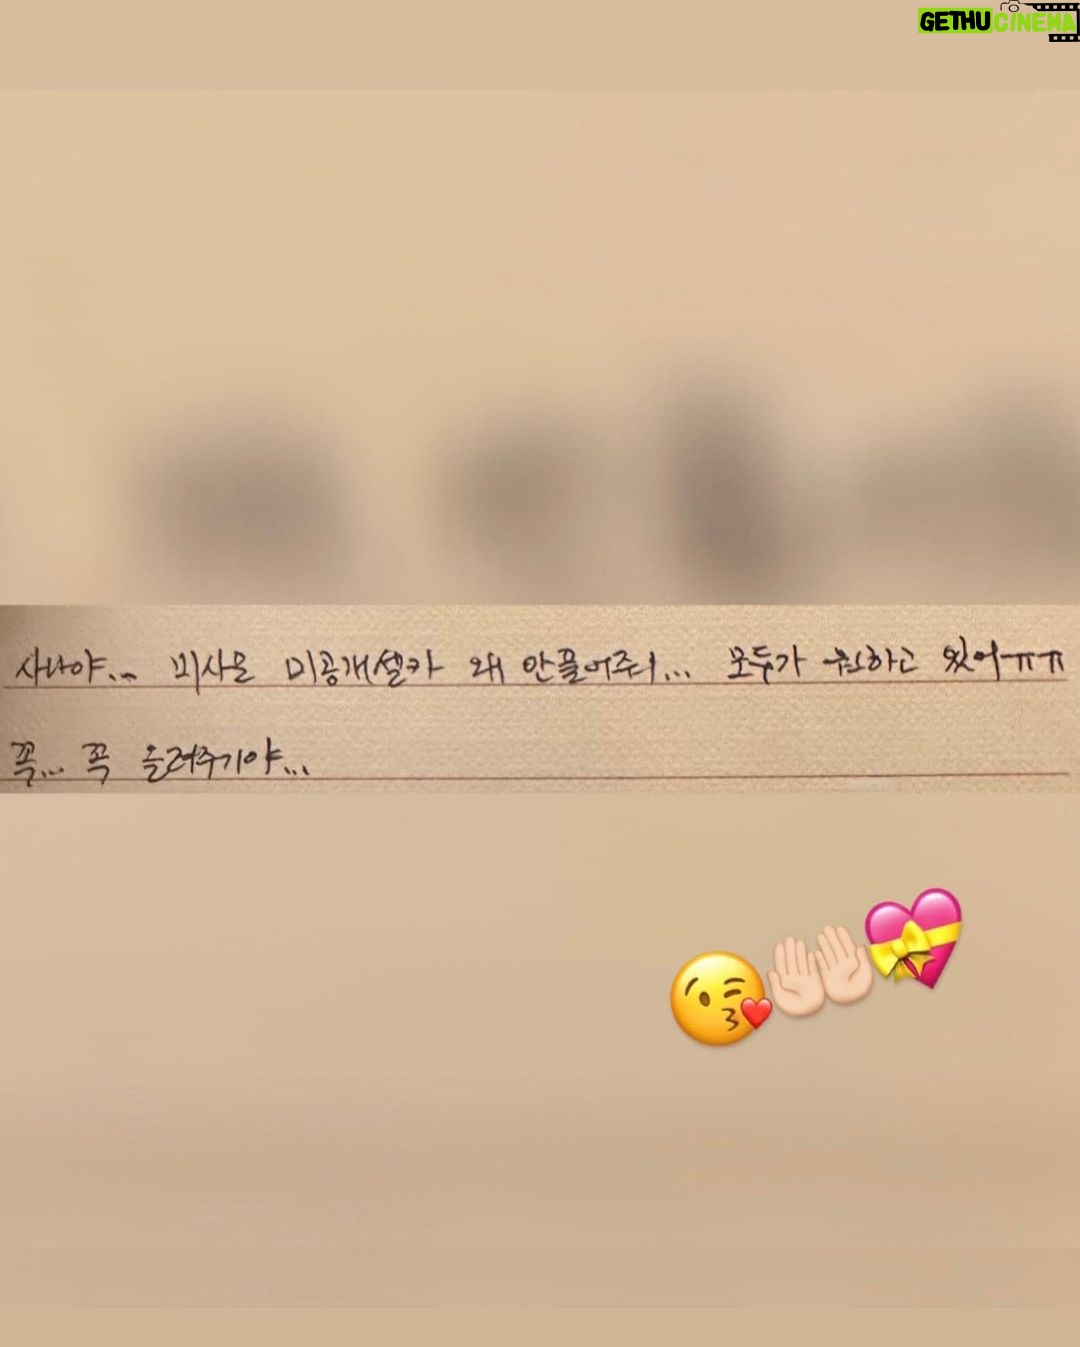 GETHUCINEMA
사나야... 미사모 미공개셀카 왜 안풀어줘... 모두가 원하고 있어ㅠㅠ
꼭... 꼭 올려주기야...